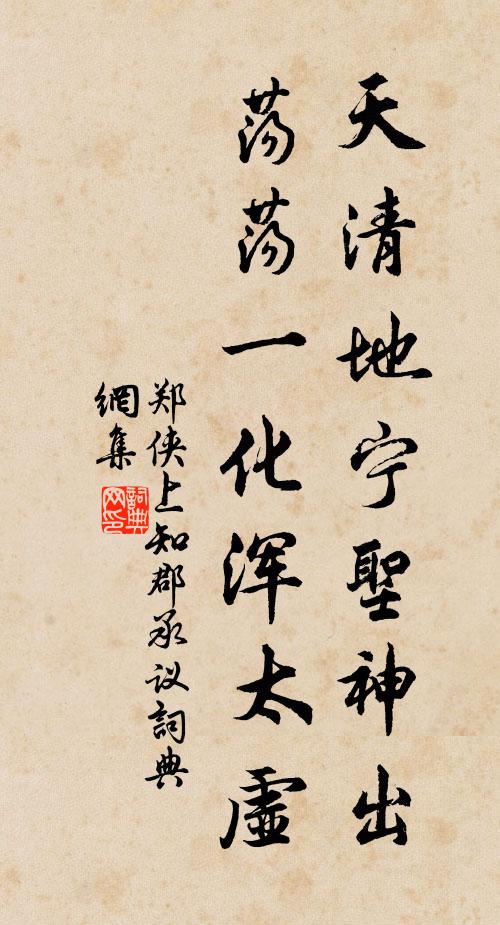 天清地宁聖神出
荡荡一化浑太虛
郑侠上知郡承议詞典
網集
詞典网印